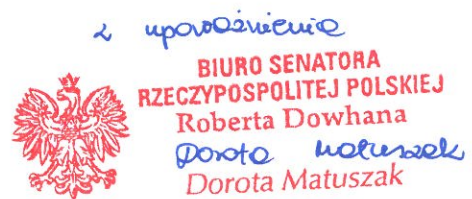 z upoważnienia
BIURO SENATORA
RZECZYPOSPOLITEJ POLSKIEJ
Roberta Dowhana
Dorota Matuszak
Dorota Matuszak